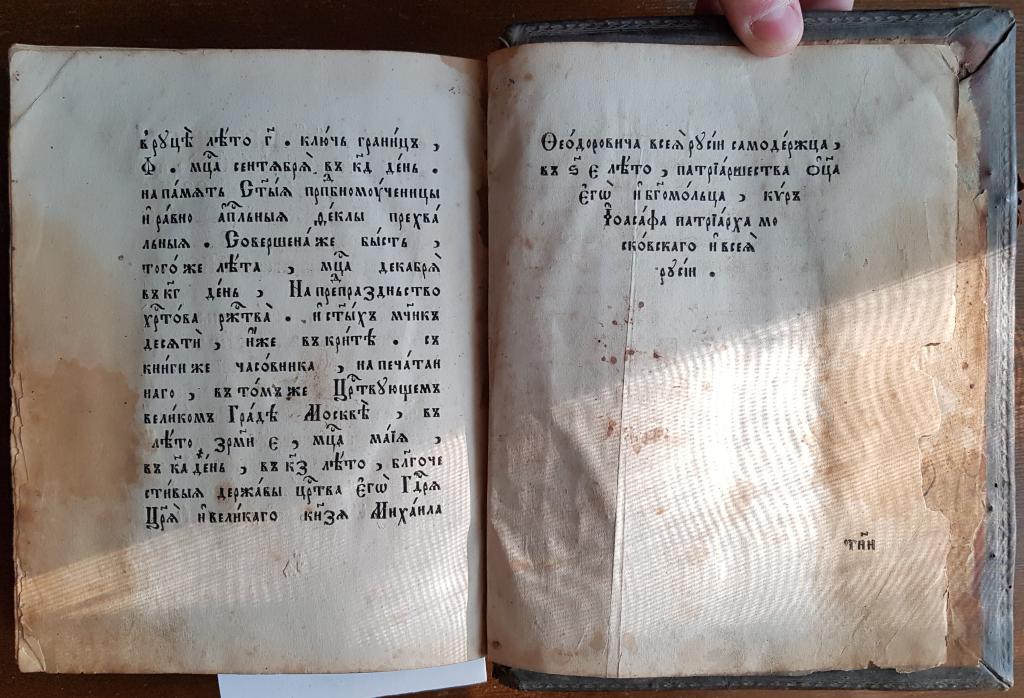 в руцѣ лѣто г҃ . ключь границъ ,
Ф . мцⷭ҇а сентѧбрѧ̀ въ к҃д де́нь .
на па́мѧть Ст҃ы́ѧ прпⷣбномꙋченицы
и҆ равно а҆пⷭ҇льныѧ ѳе́клы прехва́
льныѧ . Соверше́на же бы́сть ,
того́ же лѣ́та , мцⷭ҇а декабрѧ̀
въ к҃г де́нь , На пре́дпра́зднество
хрⷭ҇то́ва ржⷭ҇тва̀ . и҆ ст҃ы́хъ мч҃нкъ
десѧтѝ , и҆́же въ кри́тѣ . съ
книги же часо́вника , на печа́тан
наго , въ то́мъ же Црⷭ҇твꙋющемъ
вели́комъ Гра́дѣ Москвѣ̀ , въ
лѣ́то зрмⷩ҇и е҃ , мцⷭ҇а ма́їѧ ,
въ к҃а де́нь , въ к҃з лѣ́то , бл҃гоче
сти́выѧ держа́вы црⷭ҇тва є҆гѡ̀ Гдⷭ҇рѧ
Цр҃ѧ̀ и҆ вели́каго кнѧ́зѧ Миха́ила
Ѳео́доровича всеѧ̀ рꙋсі́и самоде́ржца ,
въ ѕ҃ е лѣ́то , патрїа́ршества ѻ҆ц҃а̀
є҆гѡ̀ и҆ бг҃омо́льца , кѵ́ръ
І҆оаса́фа патрїа́рха мо
ско́вскаго и҆ всеѧ̀
рꙋсі́и .